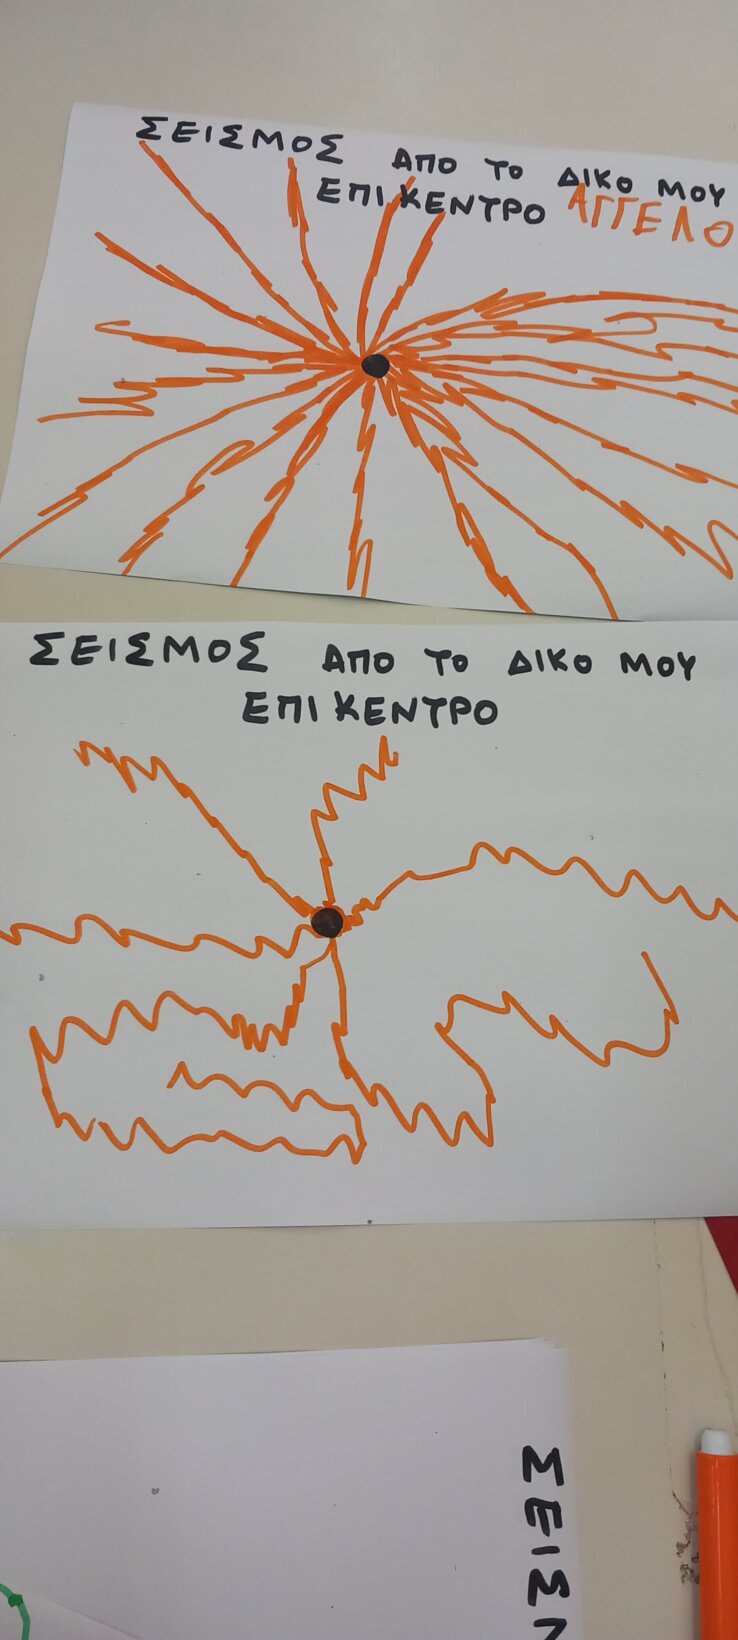 ΣΕΙΣΜΟΣ ΑΠΟ ΤΟ ΔΙΚΟ ΜΟΥ
ΕΠΙΚΕΝΤΡΟ ΑΓΓΕΛΟ
ΣΕΙΣΜΟΣ ΑΠΟ ΤΟ ΔΙΚΟ ΜΟΥ
ΕΠΙΚΕΝΤΡΟ
ΣΕΙΣ